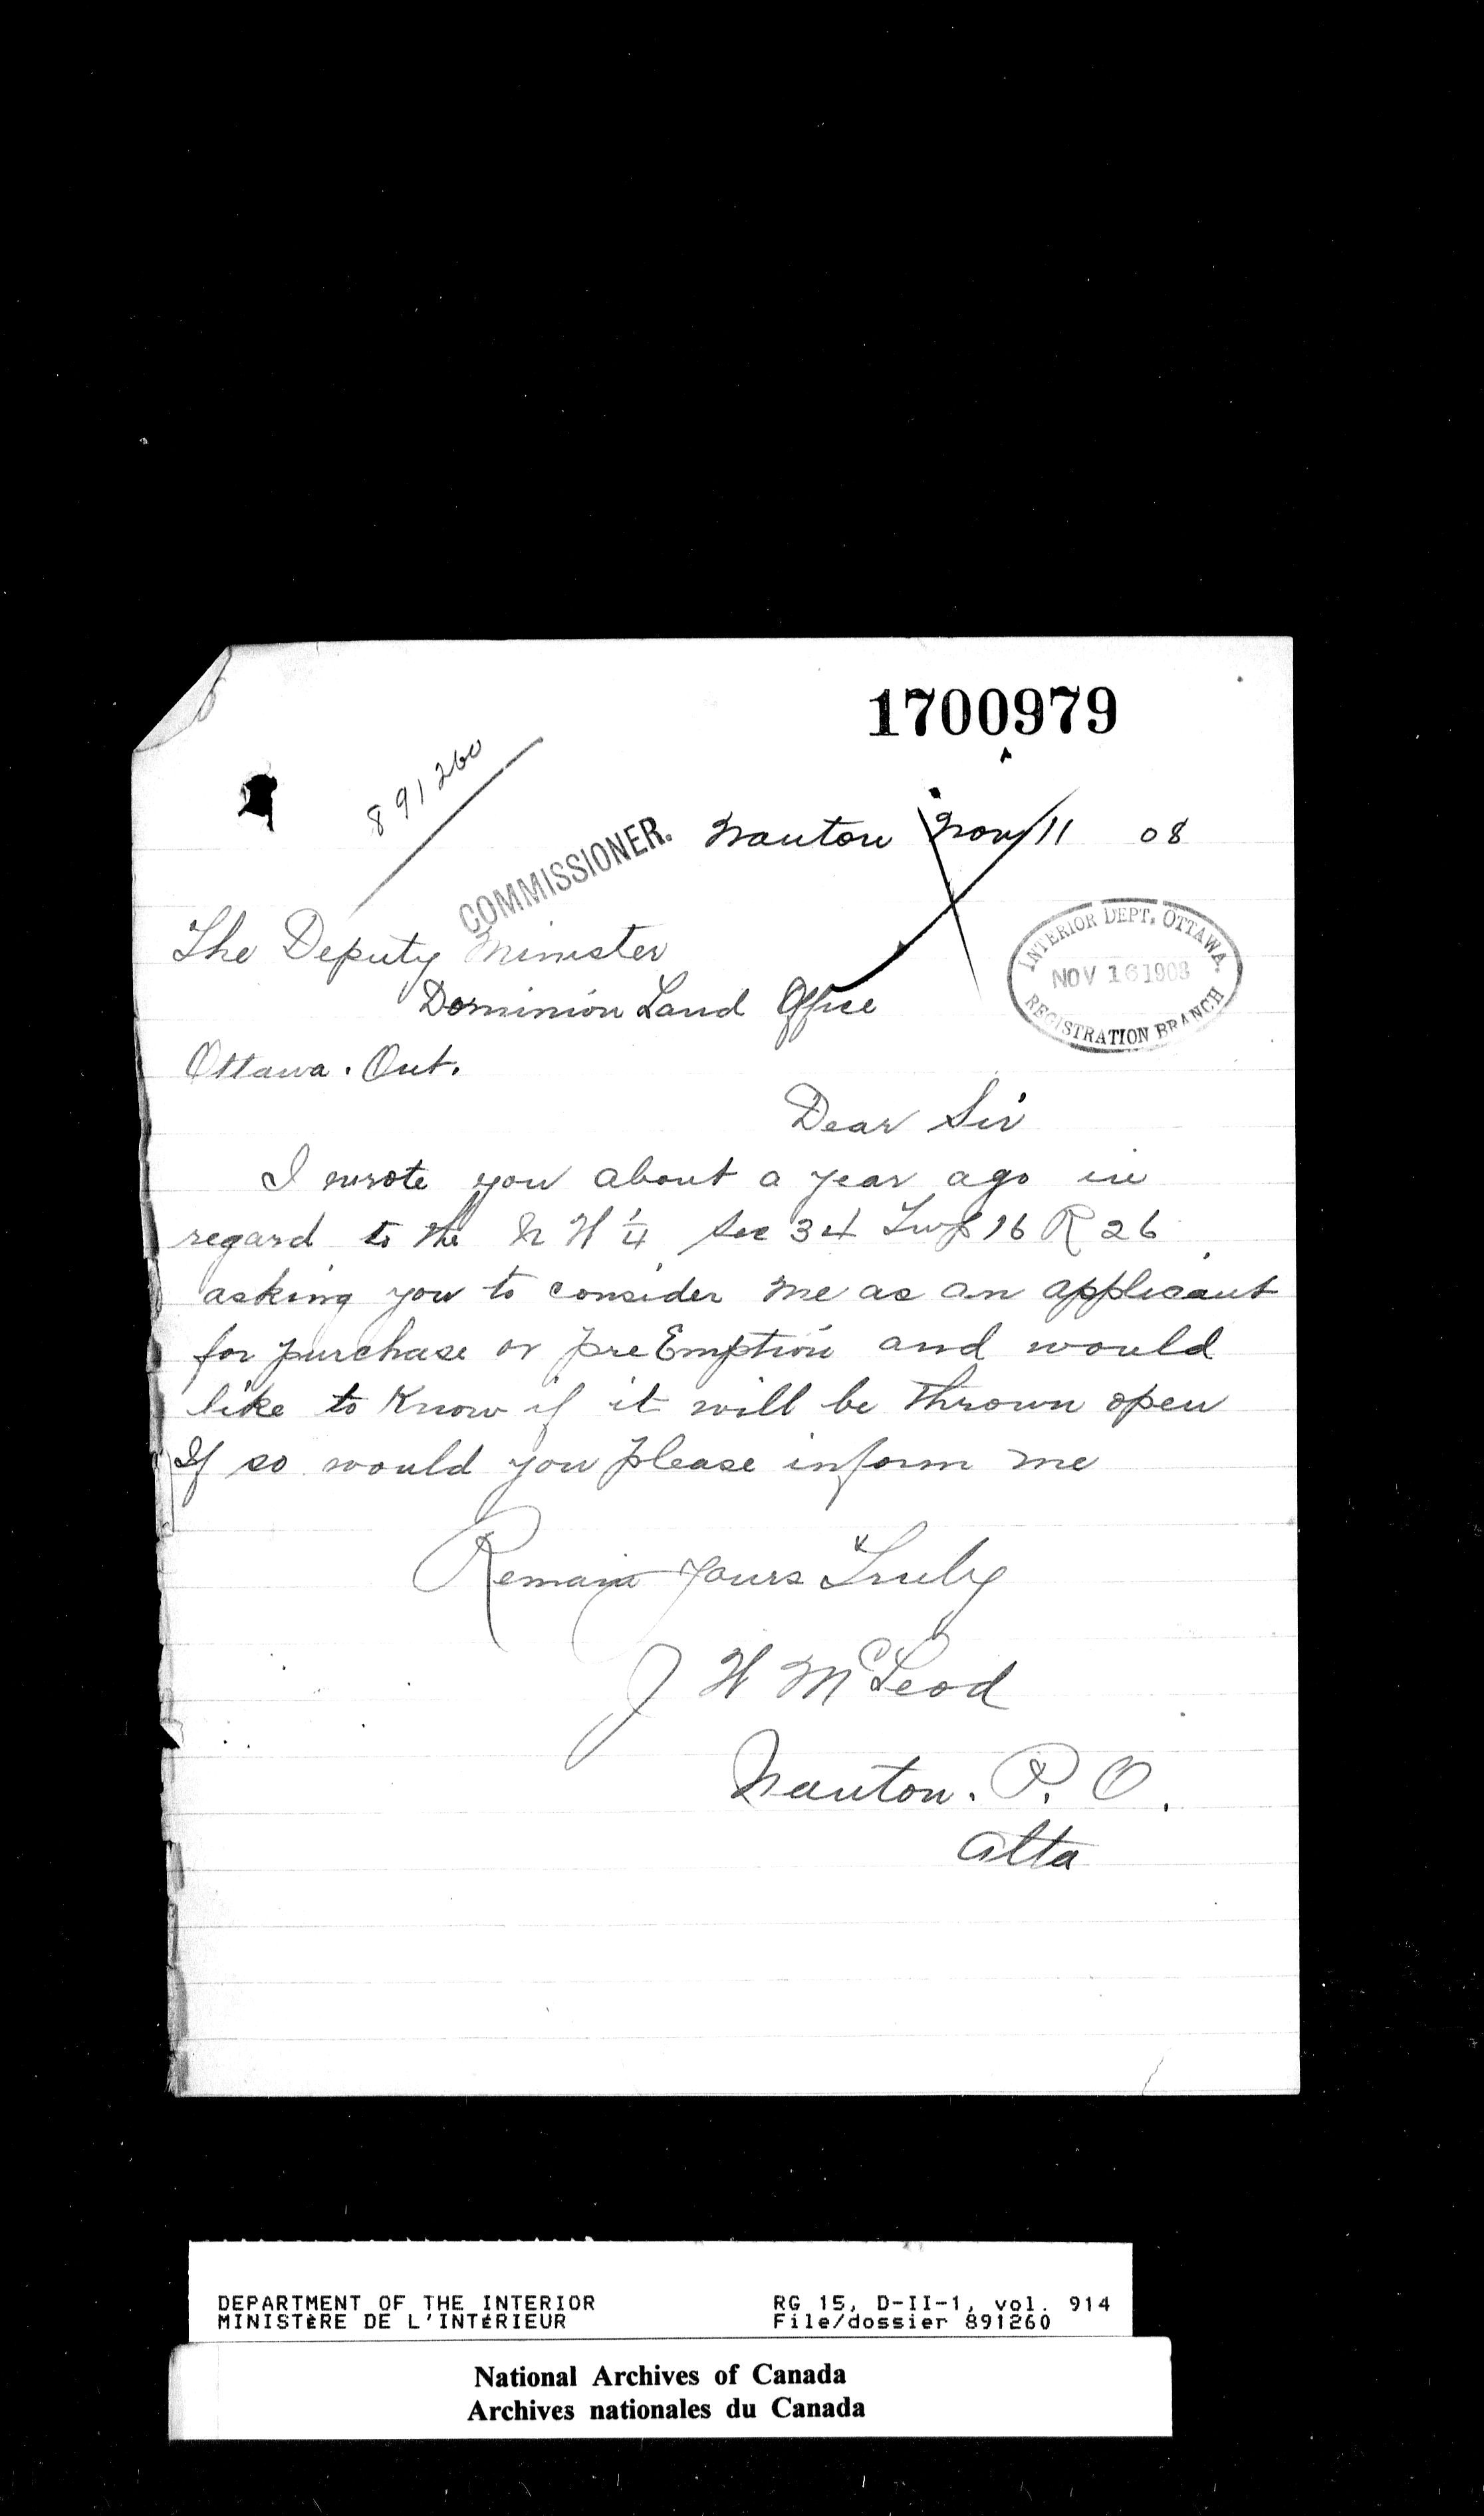 1700979
891260
COMMISSIONER.
Nanton Nov 11 08
The Deputy Minister
Dominion Land Office
INTERIOR DEPT. OTTAWA.
NOV 16 1908
REGISTRATION BRANCH
Ottawa. Ont.
Dear Sir
I wrote you about a year ago in
regard to the N W 1/4 Sec 34 Twp 16 R 26
asking you to consider me as an applicant
for purchase or pre Emption and would
like to Know if it will be thrown open
If so would you please inform me
Remain Yours Truly
J W McLeod
Nanton. P. O.
Alta
DEPARTMENT OF THE INTERIOR RG 15, D-II-1, vol. 914
MINISTÈRE DE L'INTÉRIEUR File/dossier 891260
National Archives of Canada
Archives nationales du Canada